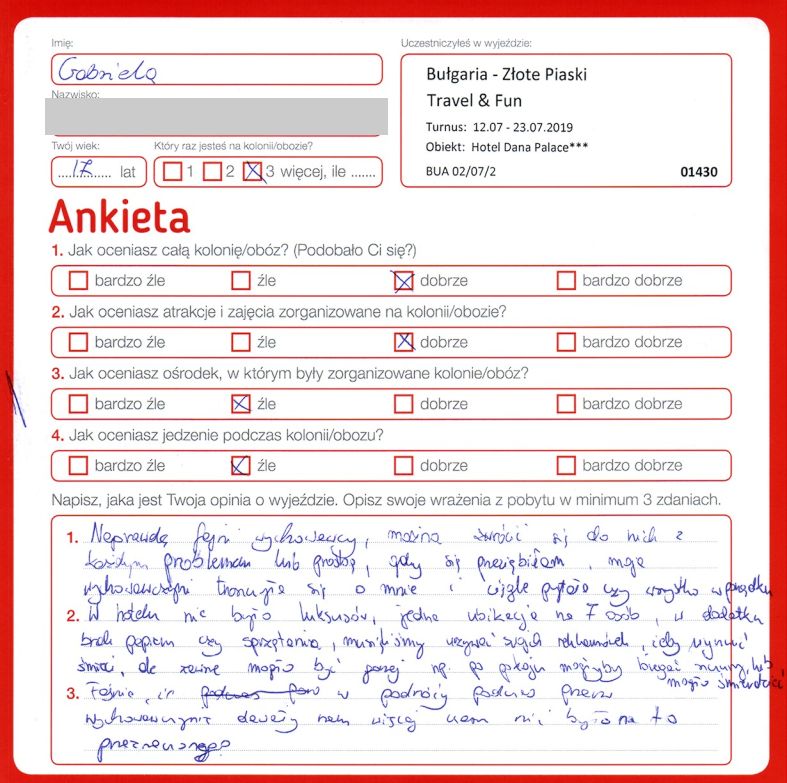 Imię:
Gabriela
Nazwisko:
Twój wiek:
17 lat
Który raz jesteś na kolonii/obozie?
1 2 3 więcej, ile .......
Uczestniczyłeś w wyjeździe:
Bułgaria - Złote Piaski
Travel & Fun
Turnus: 12.07 - 23.07.2019
Obiekt: Hotel Dana Palace***
BUA 02/07/2 01430
Ankieta
1. Jak oceniasz całą kolonię/obóz? (Podobało Ci się?)
bardzo źle źle dobrze bardzo dobrze
2. Jak oceniasz atrakcje i zajęcia zorganizowane na kolonii/obozie?
bardzo źle źle dobrze bardzo dobrze
3. Jak oceniasz ośrodek, w którym były zorganizowane kolonie/obóz?
bardzo źle źle dobrze bardzo dobrze
4. Jak oceniasz jedzenie podczas kolonii/obozu?
bardzo źle źle dobrze bardzo dobrze
Napisz, jaka jest Twoja opinia o wyjeździe. Opisz swoje wrażenia z pobytu w minimum 3 zdaniach.
1. Naprawdę fajni wychowawcy, można zwrócić się do nich z
każdym problemem lub prośbą, gdy się przeziębiłam, moja
wychowawczyni troszczyła się o mnie i ciągle pytała czy wszystko w porządku
2. W hotelu nie było luksusów, jedna ubikacja na 7 osób, w dodatku
brak papieru czy sprzątania, musiałyśmy używać swoich reklamówek, żeby wyrzucić
śmieci, ale zawsze mogło być gorzej np. po pokoju mogłyby biegać szczury, lub
mogło śmierdzieć
3. Fajnie, że w podróży podczas przerw
wychowawczynie dawały nam więcej czasu niż było na to
przeznaczonego